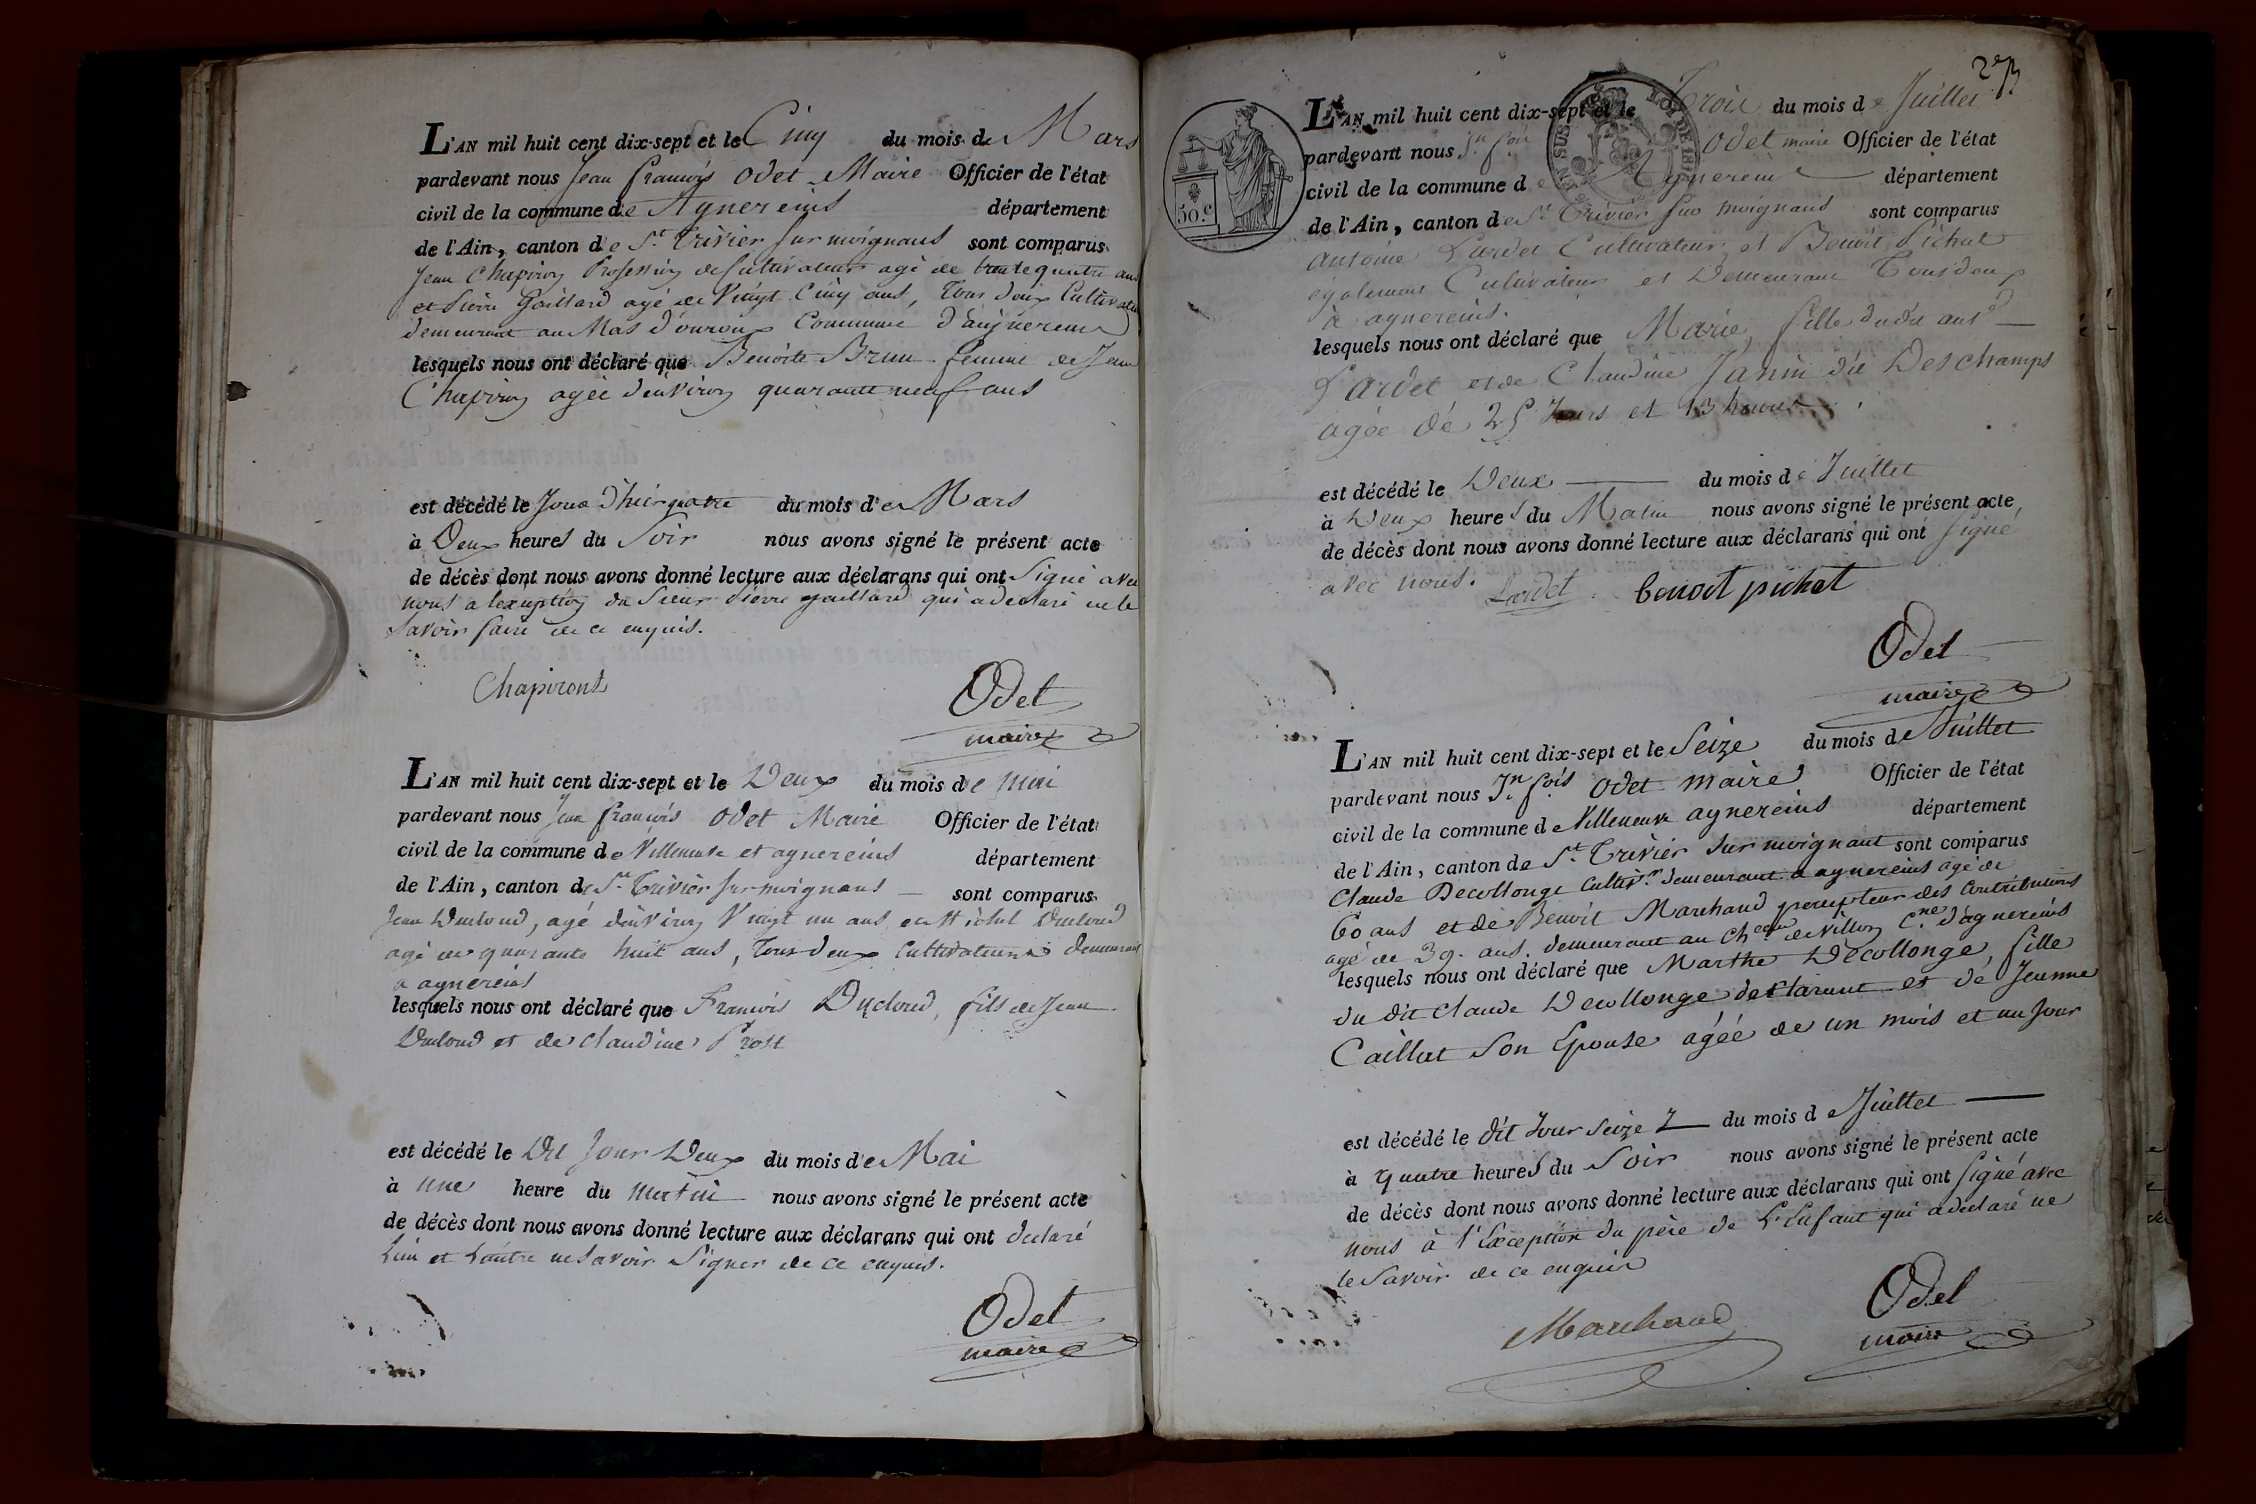 L'AN mil huit cent dix-sept et le Cinq du mois de Mars
pardevant nous Jean françois Odet Maire Officier de l'état
civil de la commune de Agnereins département
de l'Ain, canton de St. Trivier sur moignans sont comparus
Jean Chapiron Profession de Cultivateur agé de trente quatre ans
et Pierre Gaillard agé de Vingt Cinq ans, Tous deux Cultivateurs
demeurant au Mas d'ouroux Commune d'agnereins
lesquels nous ont déclaré que Benoite Brun femme de Jean
Chapiron agée d'environ quarante neuf ans
est décédé le Jour d'hier quatre du mois de Mars
à Deux heures du Soir nous avons signé le présent acte
de décès dont nous avons donné lecture aux déclarans qui ont Signé avec
nous a lexeption du Sieur Pierre gaillard qui a declaré ne le
Savoir faire de ce enquis.
Chapiront
Odet
maire
L'AN mil huit cent dix-sept et le Deux du mois de mai
pardevant nous Jean françois Odet Maire Officier de l'état
civil de la commune de Villeneuve et agnereins département
de l'Ain, canton de St. Trivier sur moignans sont comparus
Jean Ducloud, agé d'environ Vingt un ans et Michel Ducloud
agé de quarante huit ans, Tous deux Cultivateurs demeurant
a agnereins
lesquels nous ont déclaré que François Ducloud, fils de Jean
Ducloud et de Claudine Prost
est décédé le Dit Jour Deux du mois de Mai
à une heure du matin nous avons signé le présent acte
de décès dont nous avons donné lecture aux déclarans qui ont declaré
Lun et Lautre ne savoir Signer de ce enquis.
Odet
maire
2e
50.c
LOI DE 181
EN SUS
L'AN mil huit cent dix-sept et le Trois du mois de Juillet
pardevant nous Jn. fois Odet maire Officier de l'état
civil de la commune de Agnereins département
de l'Ain, canton de St Trivier sur moignans sont comparus
Antoine Lardet Cultivateur et Benoit Pichat
egalement Cultivateur et Demeurant Tous deux
à agnereins.
lesquels nous ont déclaré que Marie, fille dudit antd
Lardet et de Claudine Janin dit Deschamps
agée de 25 Jours et 13 heures
est décédé le Deux du mois de Juillet
à Deux heures du Matin nous avons signé le présent acte
de décès dont nous avons donné lecture aux déclarans qui ont signé
avec nous.
Lardet benoit pichat
Odet
maire
L'AN mil huit cent dix-sept et le Seize du mois de Juillet
pardevant nous Jn. fois Odet maire Officier de l'état
civil de la commune de Villeneuve agnereins département
de l'Ain, canton de St. Trivier sur moignant sont comparus
Claude Decollonge Cultivr. demeurant a agnereins agé de
60 ans et de Benoit Marchand percepteur des Contributions
agé de 39. ans. demeurant au Cheau de Villon Cne. d'agnereins
lesquels nous ont déclaré que Marthe Décollonge, fille
du dit Claude Decollonge declarant et de Jeanne
Caillat Son Epouse agée de un mois et un Jour
est décédé le dit Jour Seize du mois de Juillet
à quatre heures du Soir nous avons signé le présent acte
de décès dont nous avons donné lecture aux déclarans qui ont signé avec
nous à l'Exception du père de L'Enfant qui a déclaré ne
le Savoir de ce enquis
Marchand
Odet
maire